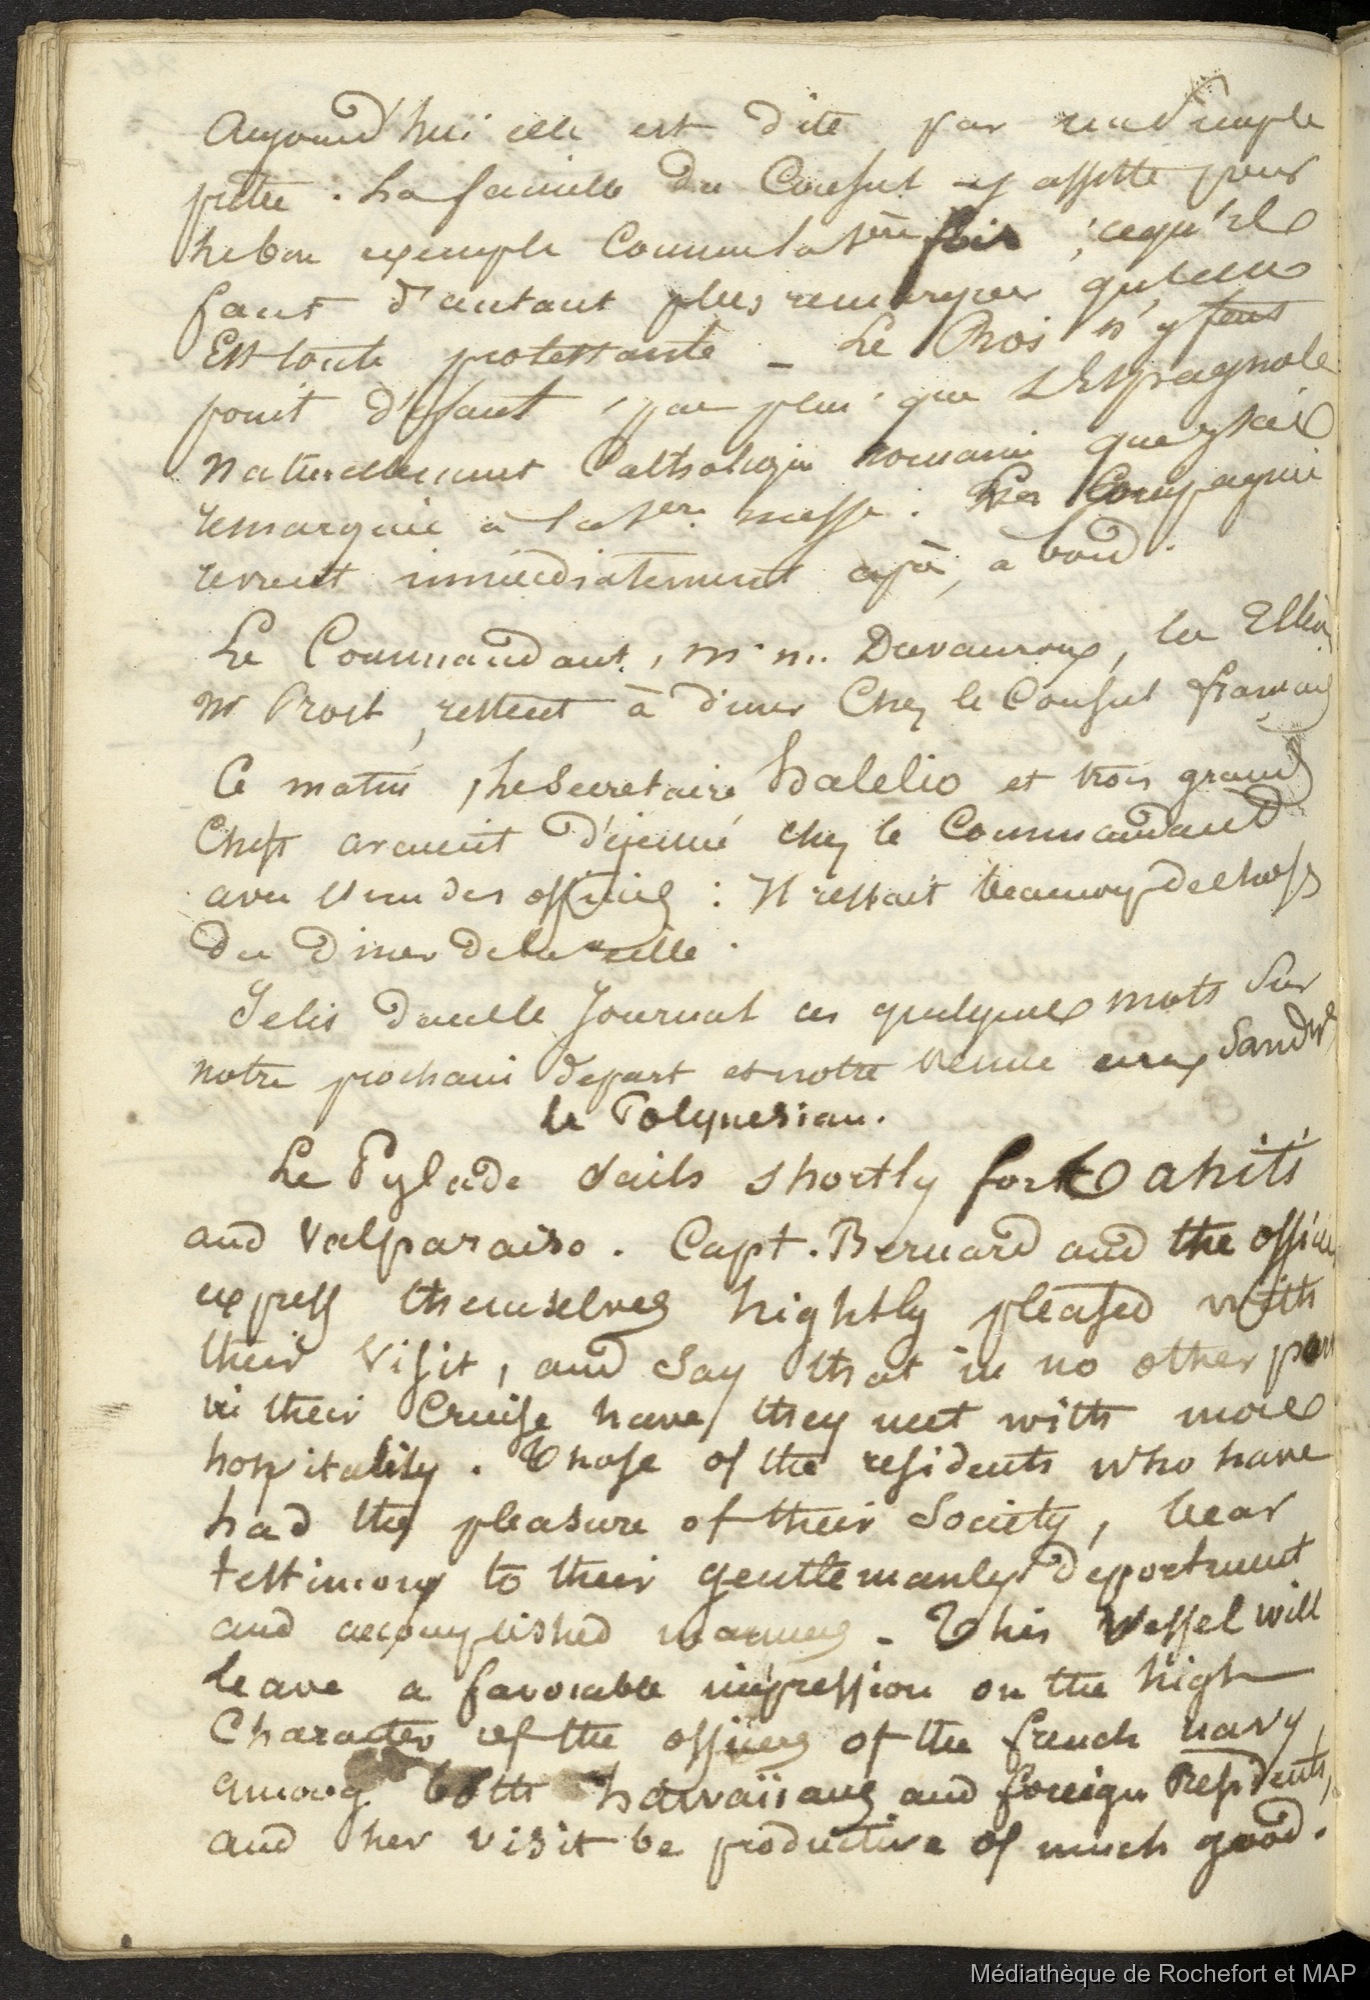 Aujourd'hui elle est dite par un simple
prêtre. La famille du Consul y assiste pour
le bon exemple comme la 1ère fois, ce qu'il
faut d'autant plus remarquer qu'elle
Est toute protestante _ Le Roi n'y fait
point défaut, pas plus que l'Espagnole
naturellement Catholique romaine que j'ai
remarquée à la 1ere messe. Les Compagnies
revient immédiatement après, à bord.
Le Commandant, mr m. Davauroux,
mr Prost, restent à diner Chez le Consul français
Ce matin, le Secretaire Halelio et trois grands
Chefs avaient déjeuné chez le Commandant
avec l'un des officiers : Il restait beaucoup de choses
du diner de la veille.
Je lis dans le Journal ces quelques mots Sur
notre prochain départ et notre venue aux Sandw
le Polynesian.
Le Pylade Sails shortly for Tahiti
and Valparaiso. Capt. Bernard and the officers
express themselves hightly pleased with
their Visit, and Say that in no other port
in their Cruise have they met with more
hospitality. Those of the residents who have
had the pleasure of their Society, bear
testimony to their gentlemanly deportment
and accomplished manners - This Vessel will
leave a favorable impression on the high
Character of the officers of the french navy,
among both hawaïians and foreign Residents,
and her visit be productive of much good.
Médiathèque de Rochefort et MAP